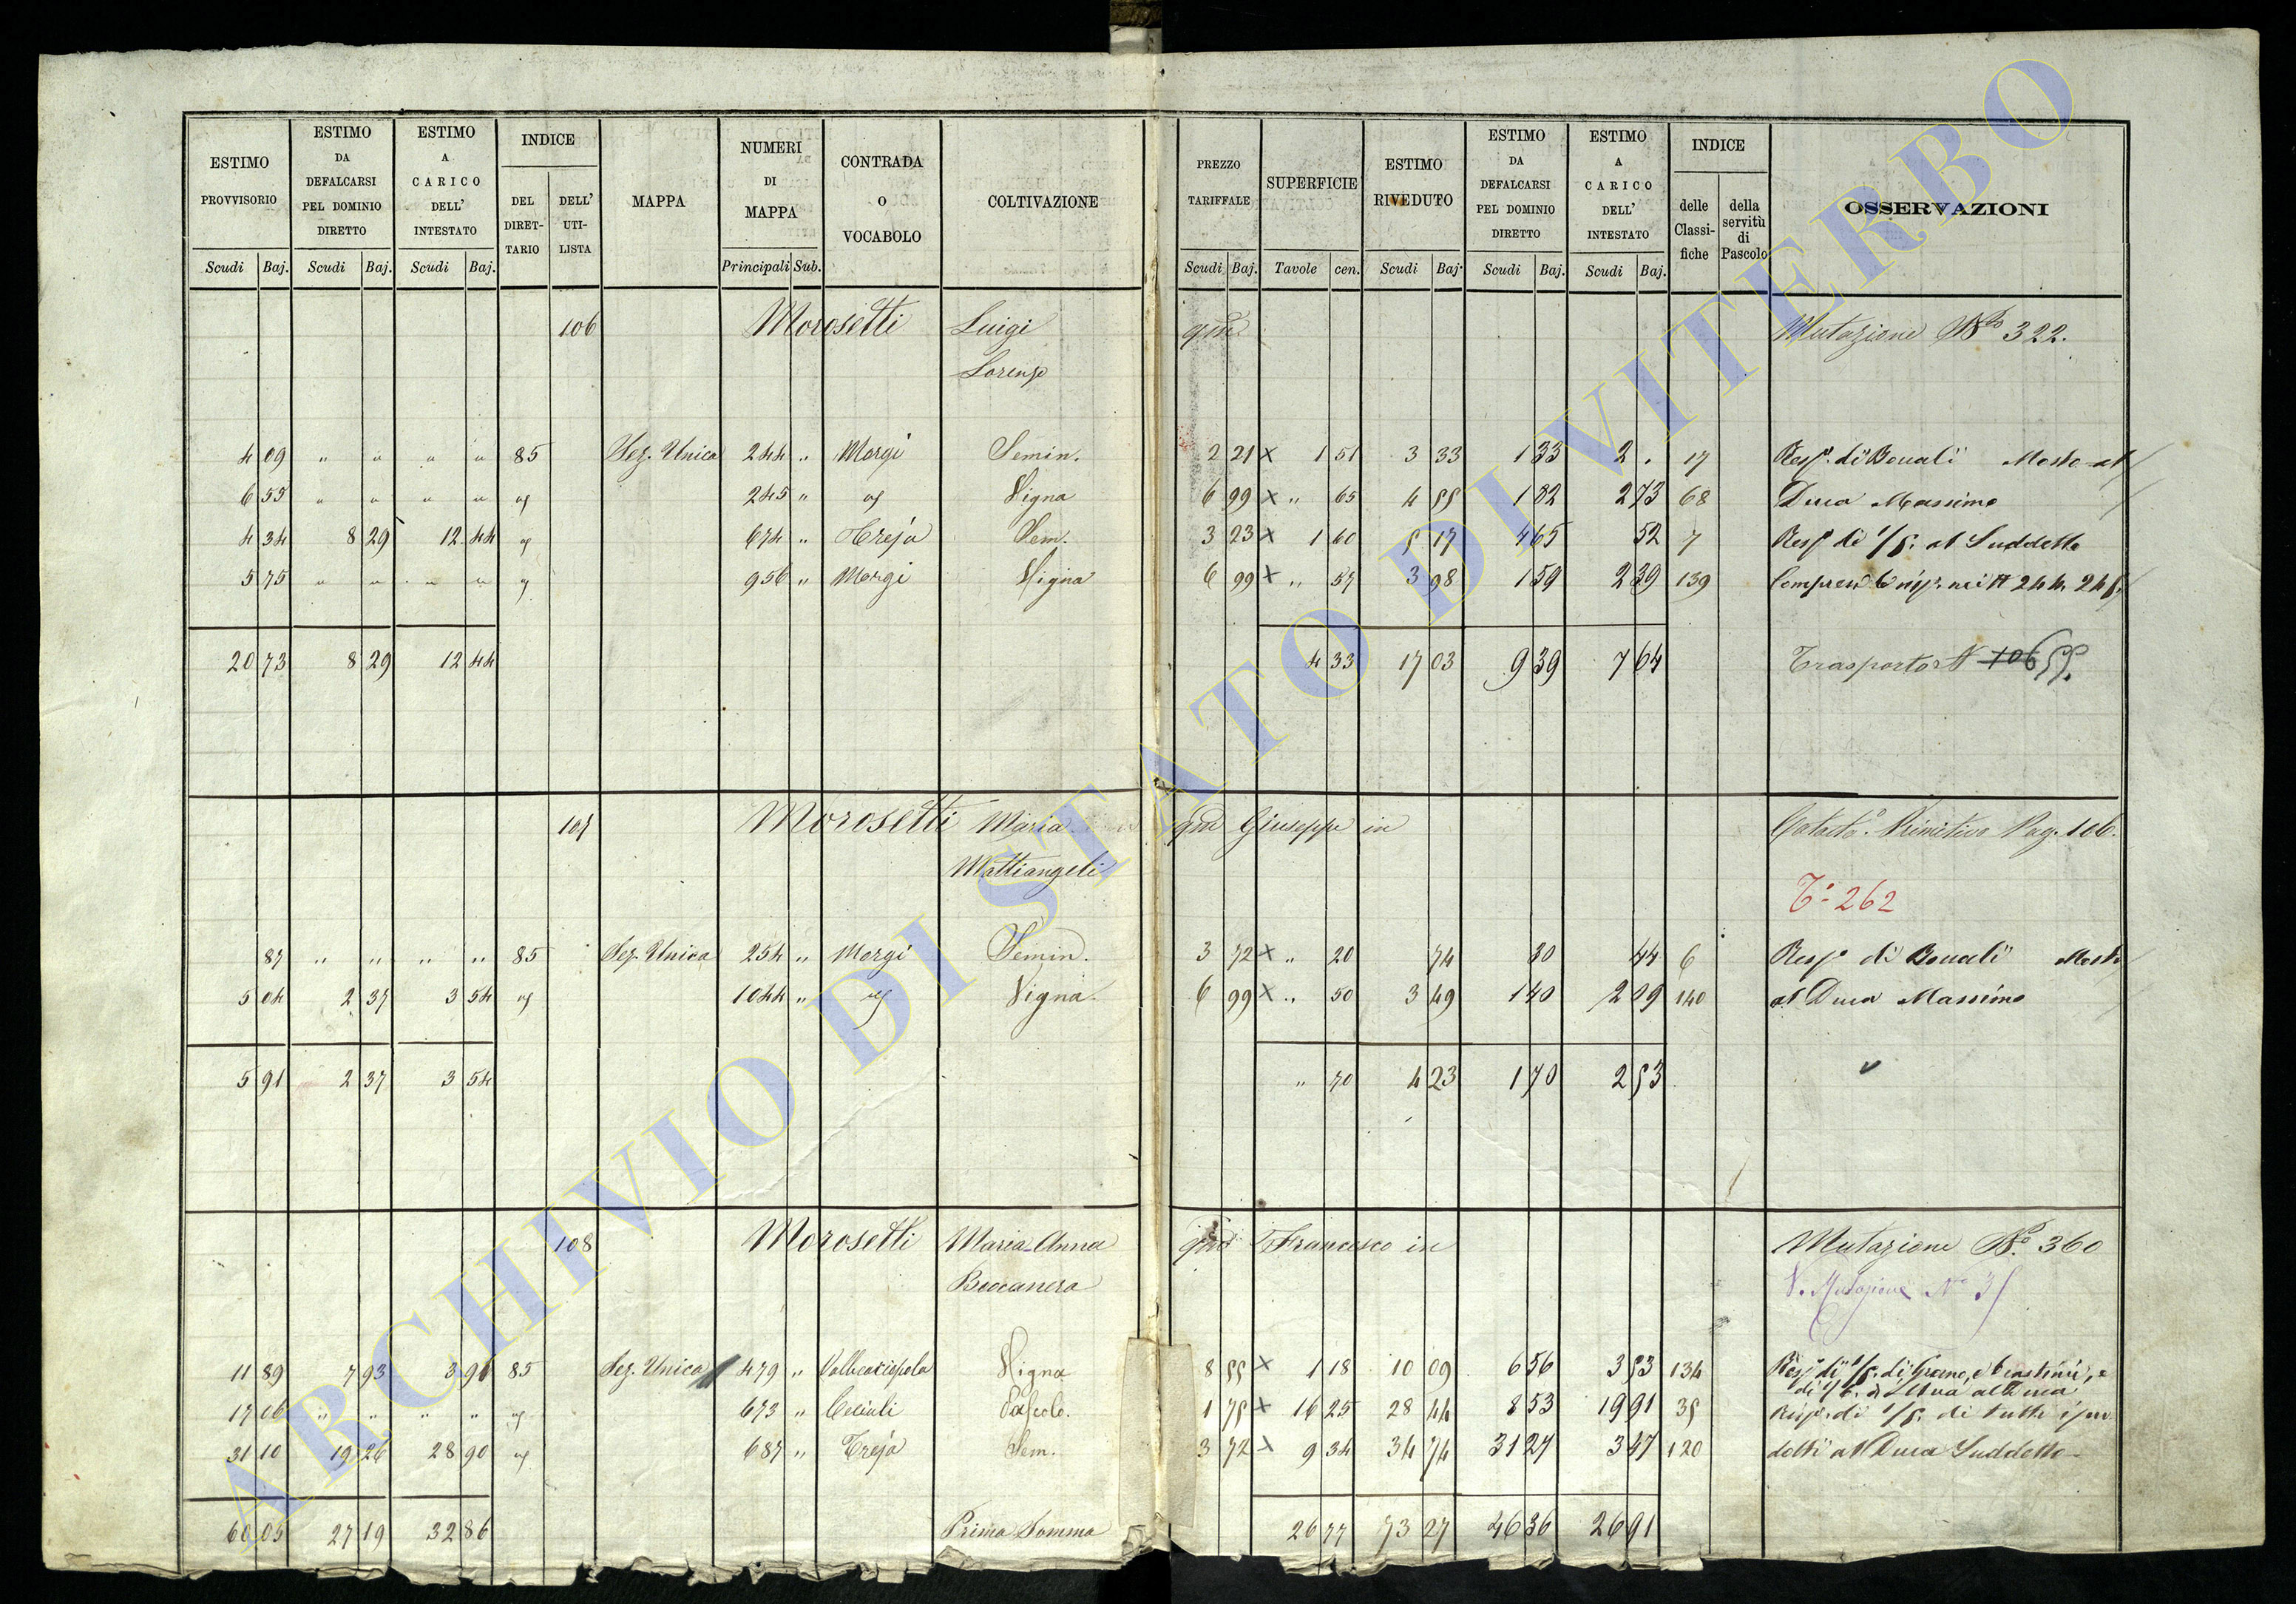 ESTIMO PROVVISORIO Scudi Baj.
ESTIMO DA DEFALCARSI PEL DOMINIO DIRETTO Scudi Baj.
ESTIMO A CARICO DELL' INTESTATO Scudi Baj.
INDICE DEL DIRET-TARIO DELL' UTI-LISTA
MAPPA
NUMERI DI MAPPA Principali Sub.
CONTRADA O VOCABOLO
COLTIVAZIONE
PREZZO TARIFFALE Scudi Baj.
SUPERFICIE Tavole cen.
ESTIMO RIVEDUTO Scudi Baj.
ESTIMO DA DEFALCARSI PEL DOMINIO DIRETTO Scudi Baj.
ESTIMO A CARICO DELL' INTESTATO Scudi Baj.
INDICE delle Classi-fiche della servitù di Pascolo
OSSERVAZIONI
106 Morosetti Luigi qm Mutazione No 322.
Lorenzo
4 09 " " " " 85 Sez. Unica 244 " Morgi Semin. 2 21 x 1 51 3 33 1 33 2 . 17 Resp. di Bonali Mosto al
6 55 " " " " 245 " Vigna 6 99 x " 65 4 55 1 82 2 73 68 Duca Massimo
4 34 8 29 12 44 674 " Treja Sem. 3 23 x 1 60 5 17 4 65 52 7 Resp di 1/5. al Suddetto
5 75 " " " " 956 " Morgi Vigna 6 99 x " 57 3 98 1 59 2 39 139 244. 245.
20 73 8 29 12 44 4 33 17 03 9 39 7 64 Trasporto N 106 55.
107 Morosetti Maria qm Giuseppe in Catasto. Primitivo Pag. 106.
Mattiangeli
To 262
87 " " " " 85 Sez. Unica 254 " Morgi Semin. 3 72 x " 20 74 30 44 6 Resp di Bonali Mosto
5 04 2 37 3 54 1044 " Vigna. 6 99 x " 50 3 49 1 40 2 09 140 al Duca Massimo
5 91 2 37 3 54 " 70 4 23 1 70 2 53
108 Morosetti Maria Anna qm Francesco in Mutazione No 360
Boccanera
V. Mutazione No 35
11 89 7 93 3 96 85 Sez. Unica 479 " Vigna 8 55 x 1 18 10 09 6 56 3 53 134 Resp di 1/5. di Grano, e
17 06 " " " " 673 " Pascolo. 1 75 x 16 25 28 44 8 53 19 91 35 Risp. di 1/5. di tutti i
31 10 19 26 28 90 687 " Treja Sem. 3 72 x 9 34 34 74 31 27 3 47 120 detti al Duca Suddetto
60 05 27 19 32 86 Prima Somma 26 77 73 27 46 36 26 91
ARCHIVIO DI STATO DI VITERBO